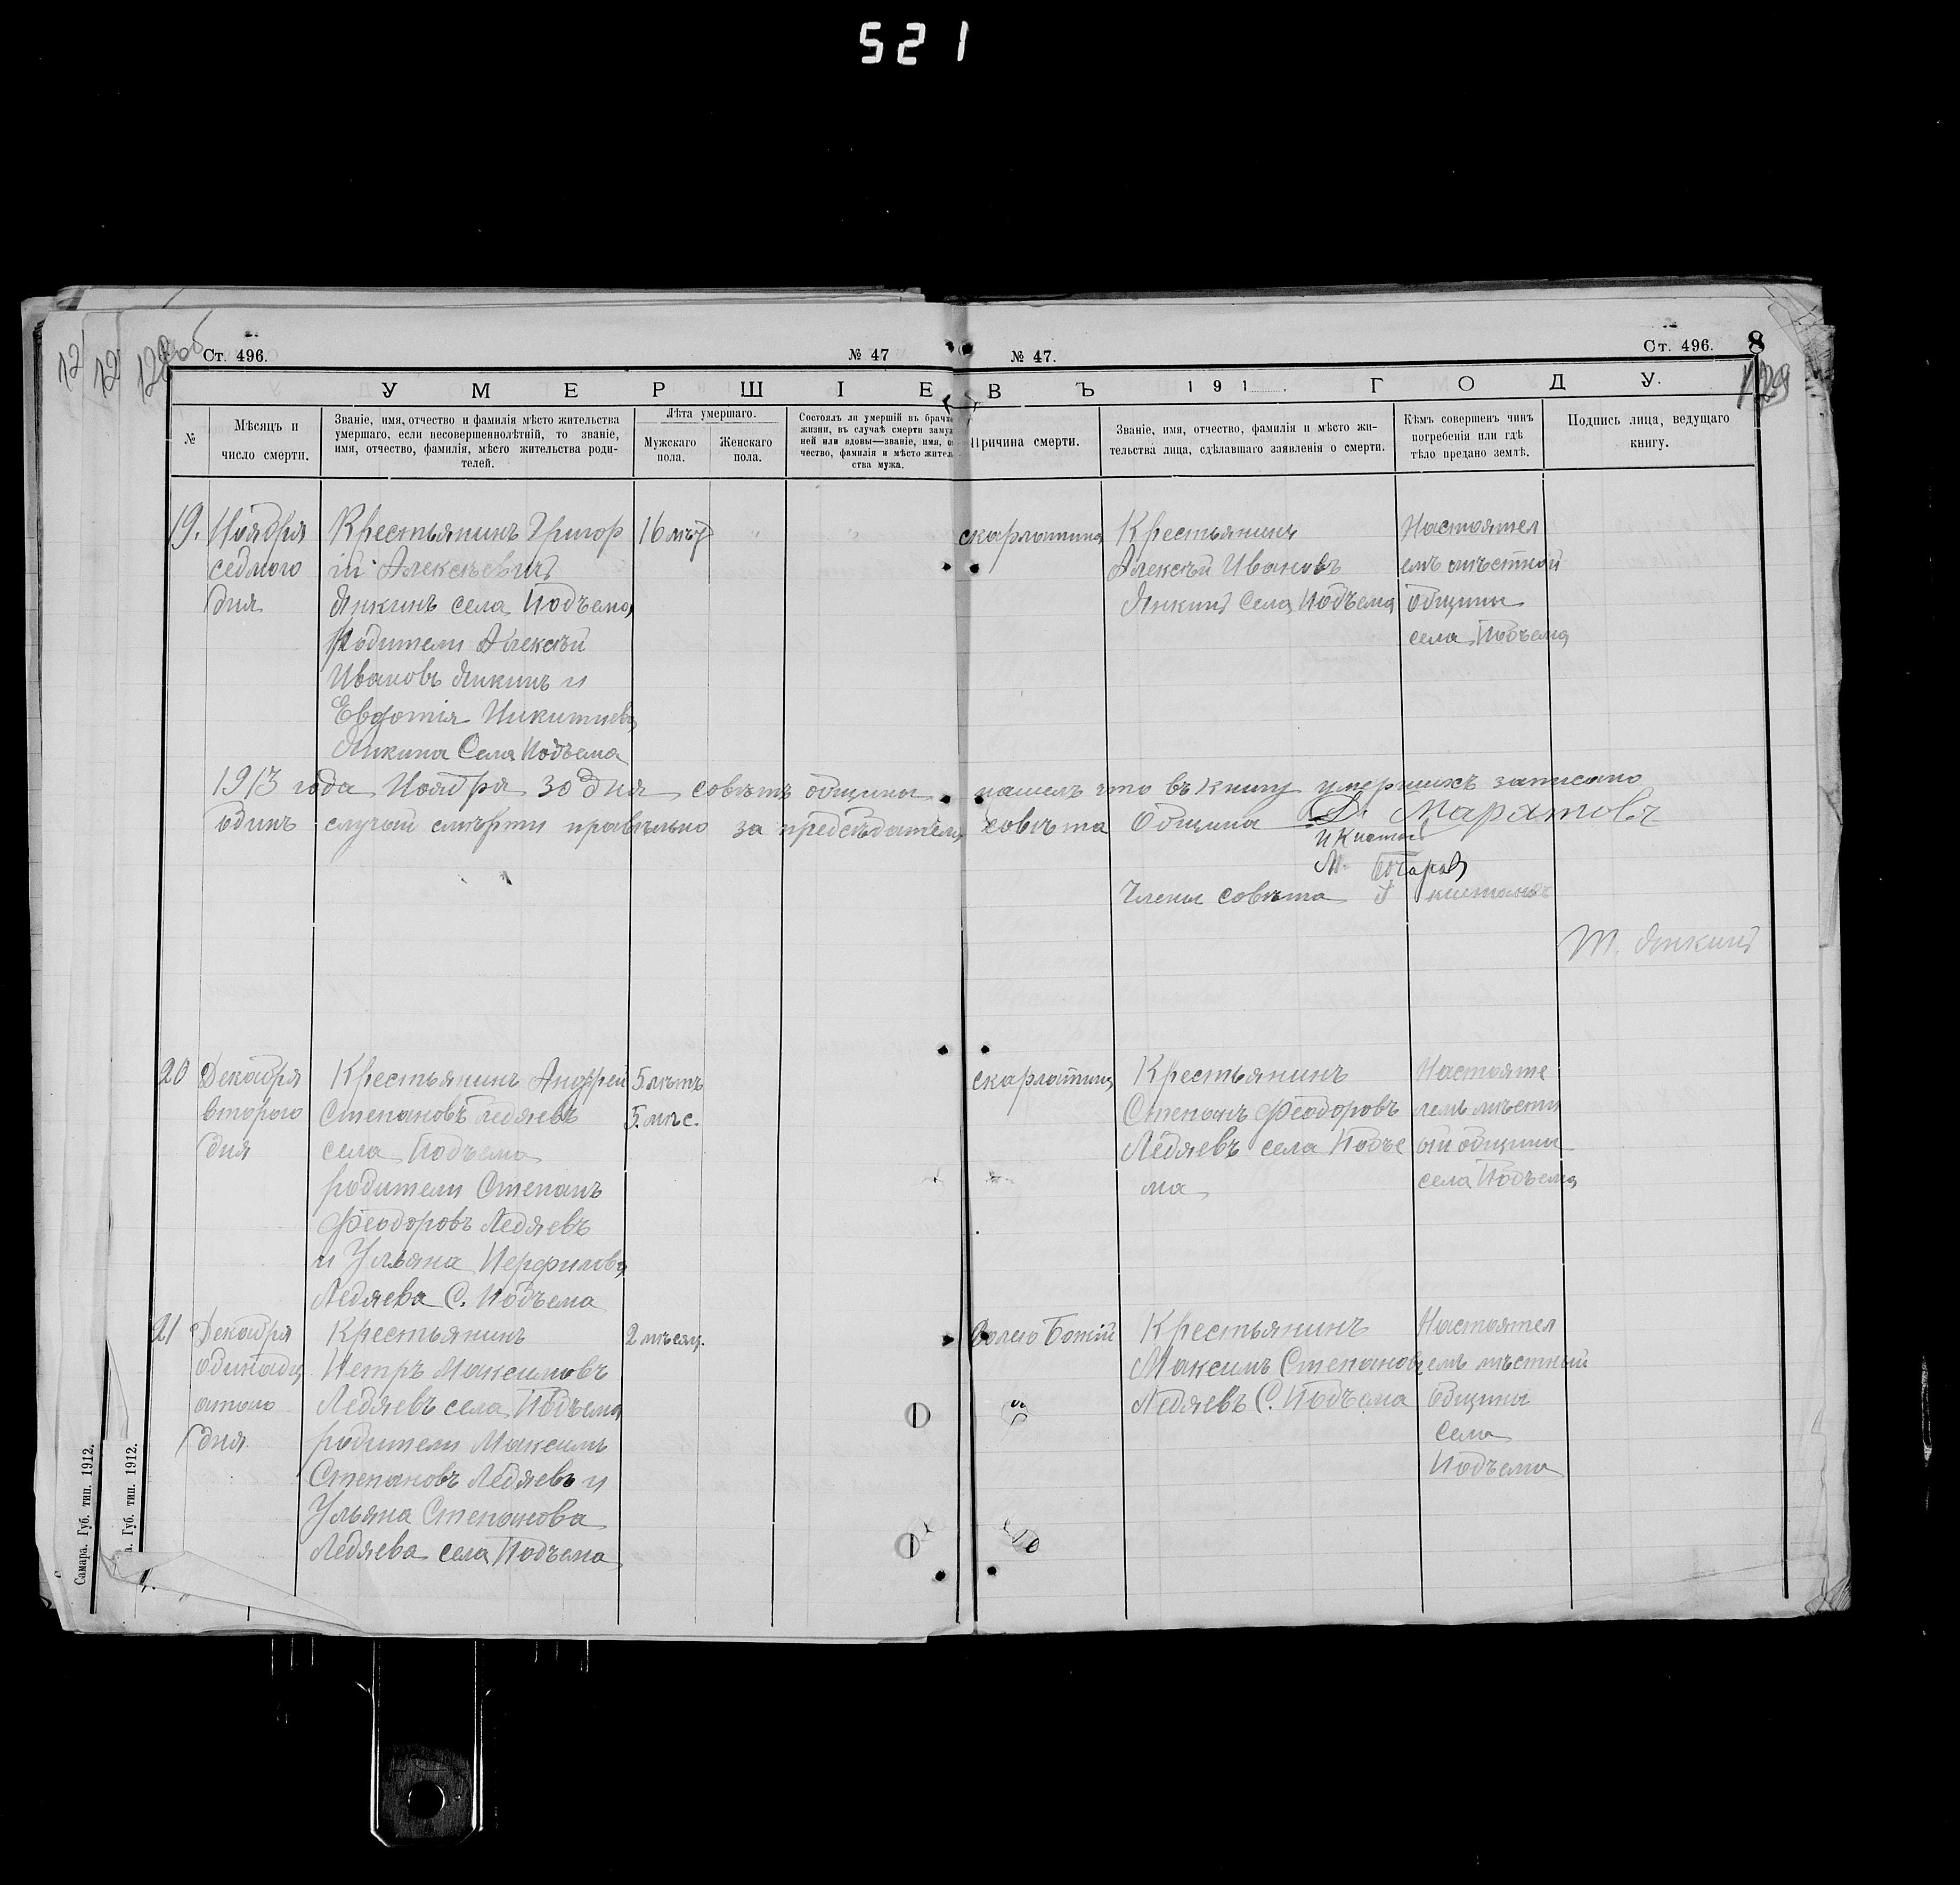 521
Ст. 496.
№ 47
№ 47.
Ст. 496.
8
УМЕРШІЕ ВЪ 191 . ГОДУ.
№
Мѣсяцъ и
число смерти.
Званіе, имя, отчество и фамилія мѣсто жительства
умершаго, если несовершеннолѣтній, то званіе,
имя, отчество, фамилія, мѣсто жительства роди-
телей.
Лѣта умершаго.
Мужскаго
пола.
Женскаго
пола.
Состоялъ ли умершій въ брачн
жизни, въ случаѣ смерти замуж
ней или вдовы—званіе, имя, о
чество, фамилія и мѣсто жител
ства мужа.
Причина смерти.
Званіе, имя, отчество, фамилія и мѣсто жи-
тельства лица, сдѣлавшаго заявленія о смерти.
Кѣмъ совершенъ чинъ
погребенія или гдѣ
тѣло предано землѣ.
Подпись лица, ведущаго
книгу.
19.
Ноября
седмого
дня
Крестьянинъ Григор
ій Алексѣевичъ
Янкинъ села Подъема
Родители Алексѣй
Ивановъ Янкинъ и
Евдотія Никитиева
Янкина Села Подъема
16 лѣтъ
скарлатина
Крестьянинъ
Алексѣй Ивановъ
Янкинъ Села Подъема
Настоятел
емъ мѣстной
общины
села Подъема
1913 года Ноября 30 дня совѣтъ общины нашелъ что въ книгу умершихъ записано
одинъ случай смѣрти правильно за предсѣдателя совѣта Община Д. Марятовъ
Члены совѣта
Т. Янкинъ
20
Декабря
второго
дня
Крестьянинъ Андрей
Степановъ Ледяевъ
села Подъема
родители Степанъ
Феодоровъ Ледяевъ
и Ульяна Перфилова
Ледяева С. Подъема
5 лѣтъ
5. мѣс.
скарлатина
Крестьянинъ
Степанъ Феодоровъ
Ледяевъ села Подъе
ма
Настояте
лемъ мѣстн
ой общины
села Подъема
21
Декабря
одинадц
атого
дня
Крестьянинъ
Петръ Максимовъ
Ледяевъ села Подъема
родители Максимъ
Степановъ Ледяевъ и
Ульяна Степанова
Ледяева села Подъема
2 мѣсяц.
Волею Божій
Крестьянинъ
Максимъ Степановъ
Ледяевъ С. Подъема
Настоятел
емъ мѣстный
общины
села
Подъема
Самара. Губ. тип. 1912.
а. Губ. тип. 1912.